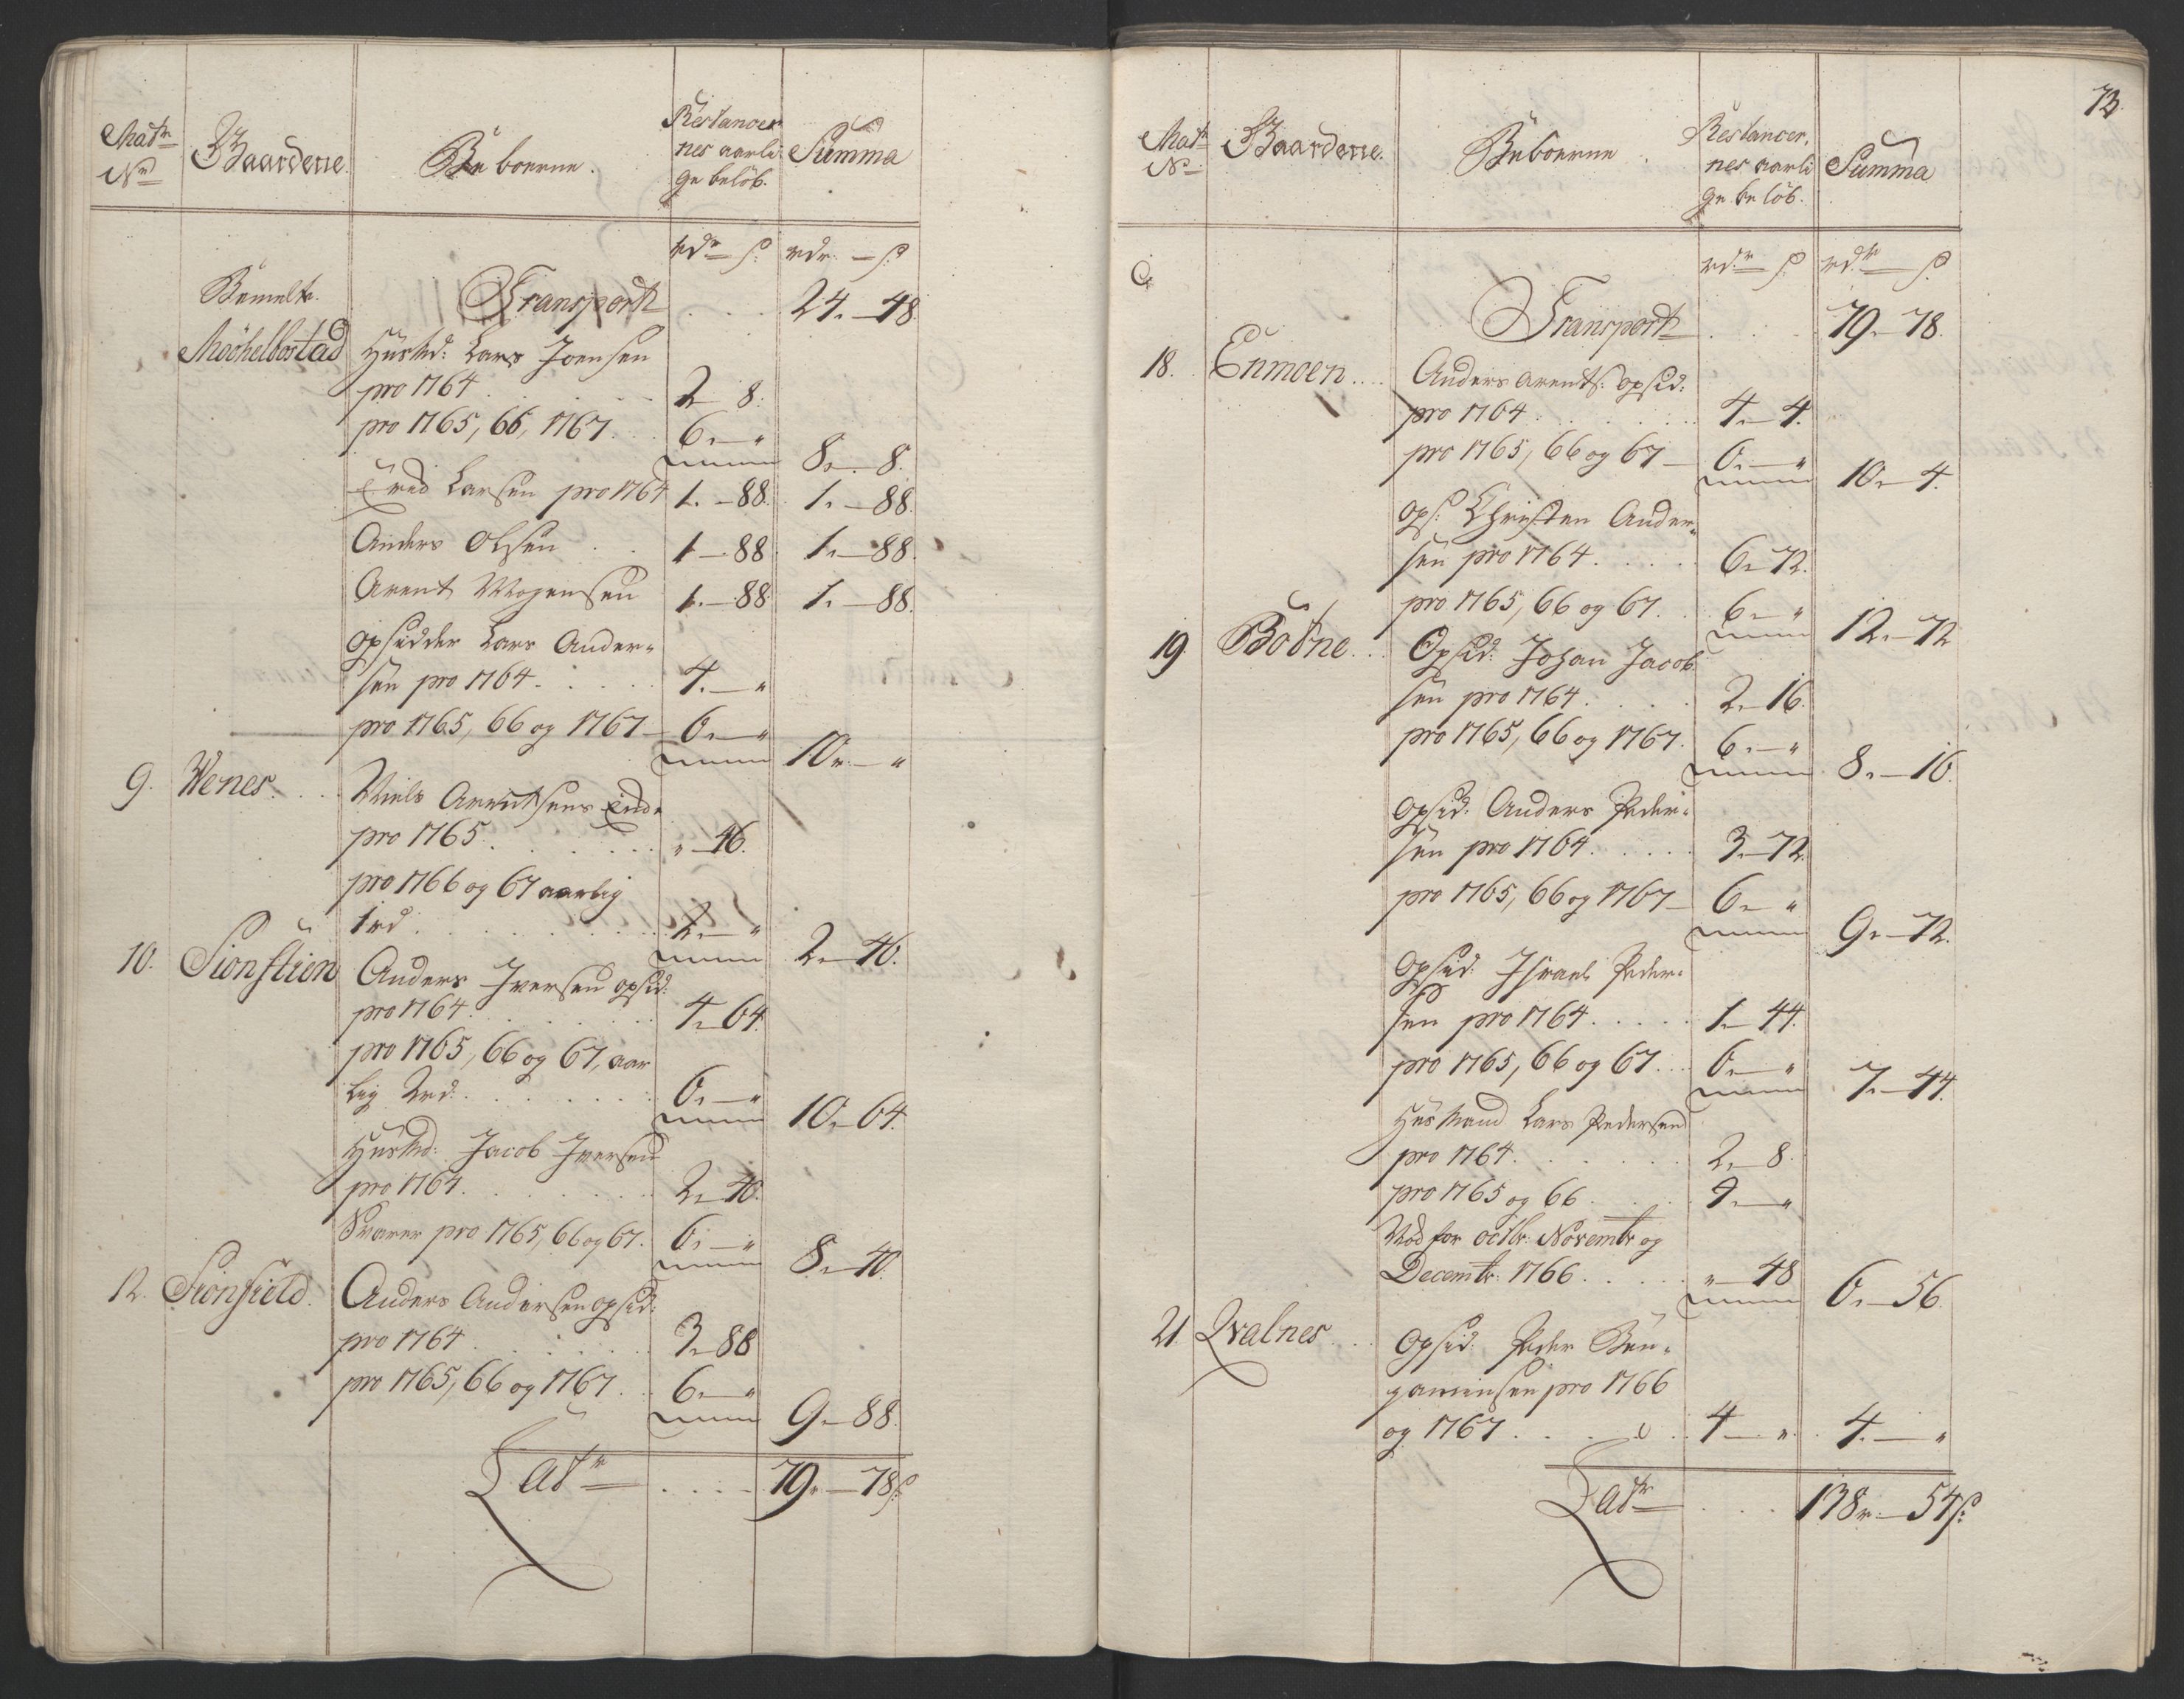 Matr
No
Gaardene.
Beboerne.
Restancer
nes aarli
ge beløb.
Summa
rdr — s: rdr. — s:
Bemelte. Transport . . . 24. — 48.
Møchelbostad Husmd: Lars Joensen
pro 1764 . . . . . 2 8.
pro 1765, 66, 1767 . . 6. — " 8. — 8.
Larsen pro 1764 1. — 88. 1. — 88.
Anders Olsen . . 1 — 88 1. — 88.
Arent Mogensen 1. — 88 1. — 88.
opsidder Lars Ander-
sen pro 1764 . . . . 4. — "
pro 1765, 66 og 1767 — 6. — " 10. — "
9. Wenes . . . Niels Arentsens
pro 1765 . . . . . . " — 46.
pro 1766 og 67 aarlig
1 rd . . . . . . . . 2. — " 2. — 46.
10. Sionstien Anders Iversen opsid:
pro 1764 . . . . . . 4. — 64.
pro 1765, 66 og 67, aar
lig 2 rd . . . . . . . 6. — " 10. — 64.
Husmd: Jacob Iversen
pro 1764 . . . . . . . 2. — 40.
Svarer pro 1765, 66 og 67. 6. — " 8. — 40.
12. Sionfield. Anders Andersen opsid:
pro 1764 . . . . . . . 3. — 88
pro 1765, 66 og 1767 . . 6. — " 9. — 88.
Latr . . . . 79. — 78 s:
73.
Matr
No
Gaardene.
Beboerne.
Restancer,
nes aarli
ge beløb.
Summa
rdr — s rdr — s
Transport . . . 79. — 78.
18. Enmoen . . . . Anders Arents: opsid:
pro 1764 . . . . . . 4. — 4.
pro 1765, 66 og 67 — 6. — " 10. — 4.
ops: Christen Ander-
sen pro 1764 . . . . . 6. — 72.
pro 1765, 66 og 67 . . 6. — " 12. — 72
19. Bodne . . . Opsid: Johan Jacob
sen pro 1764 . . . . 2. — 16.
pro 1765, 66 og 1767. 6. — " 8. — 16.
opsid: Anders Peder-
sen pro 1764 . . . . . 3. — 72.
pro 1765, 66 og 1767 — 6. — " 9. — 72.
opsid: Israel Peder-
sen pro 1764 . . . . . 1. — 44.
pro 1765, 66 og 67 . . . 6. — " 7. — 44.
Husmand Lars Pedersen
pro 1764 . . . . . . 2. — 8.
pro 1765 og 66 . . . . 4. — "
Nod for octbr: Novembr og
Decembr: 1766 . . . . . " — 48 6. — 56.
21. Qvalnes . . . opsid: Peder Ben-
jaminsen pro 1766
og 1767 . . . . . . 4 — " . 4. — "
Latr . . . 138. — 54 s: